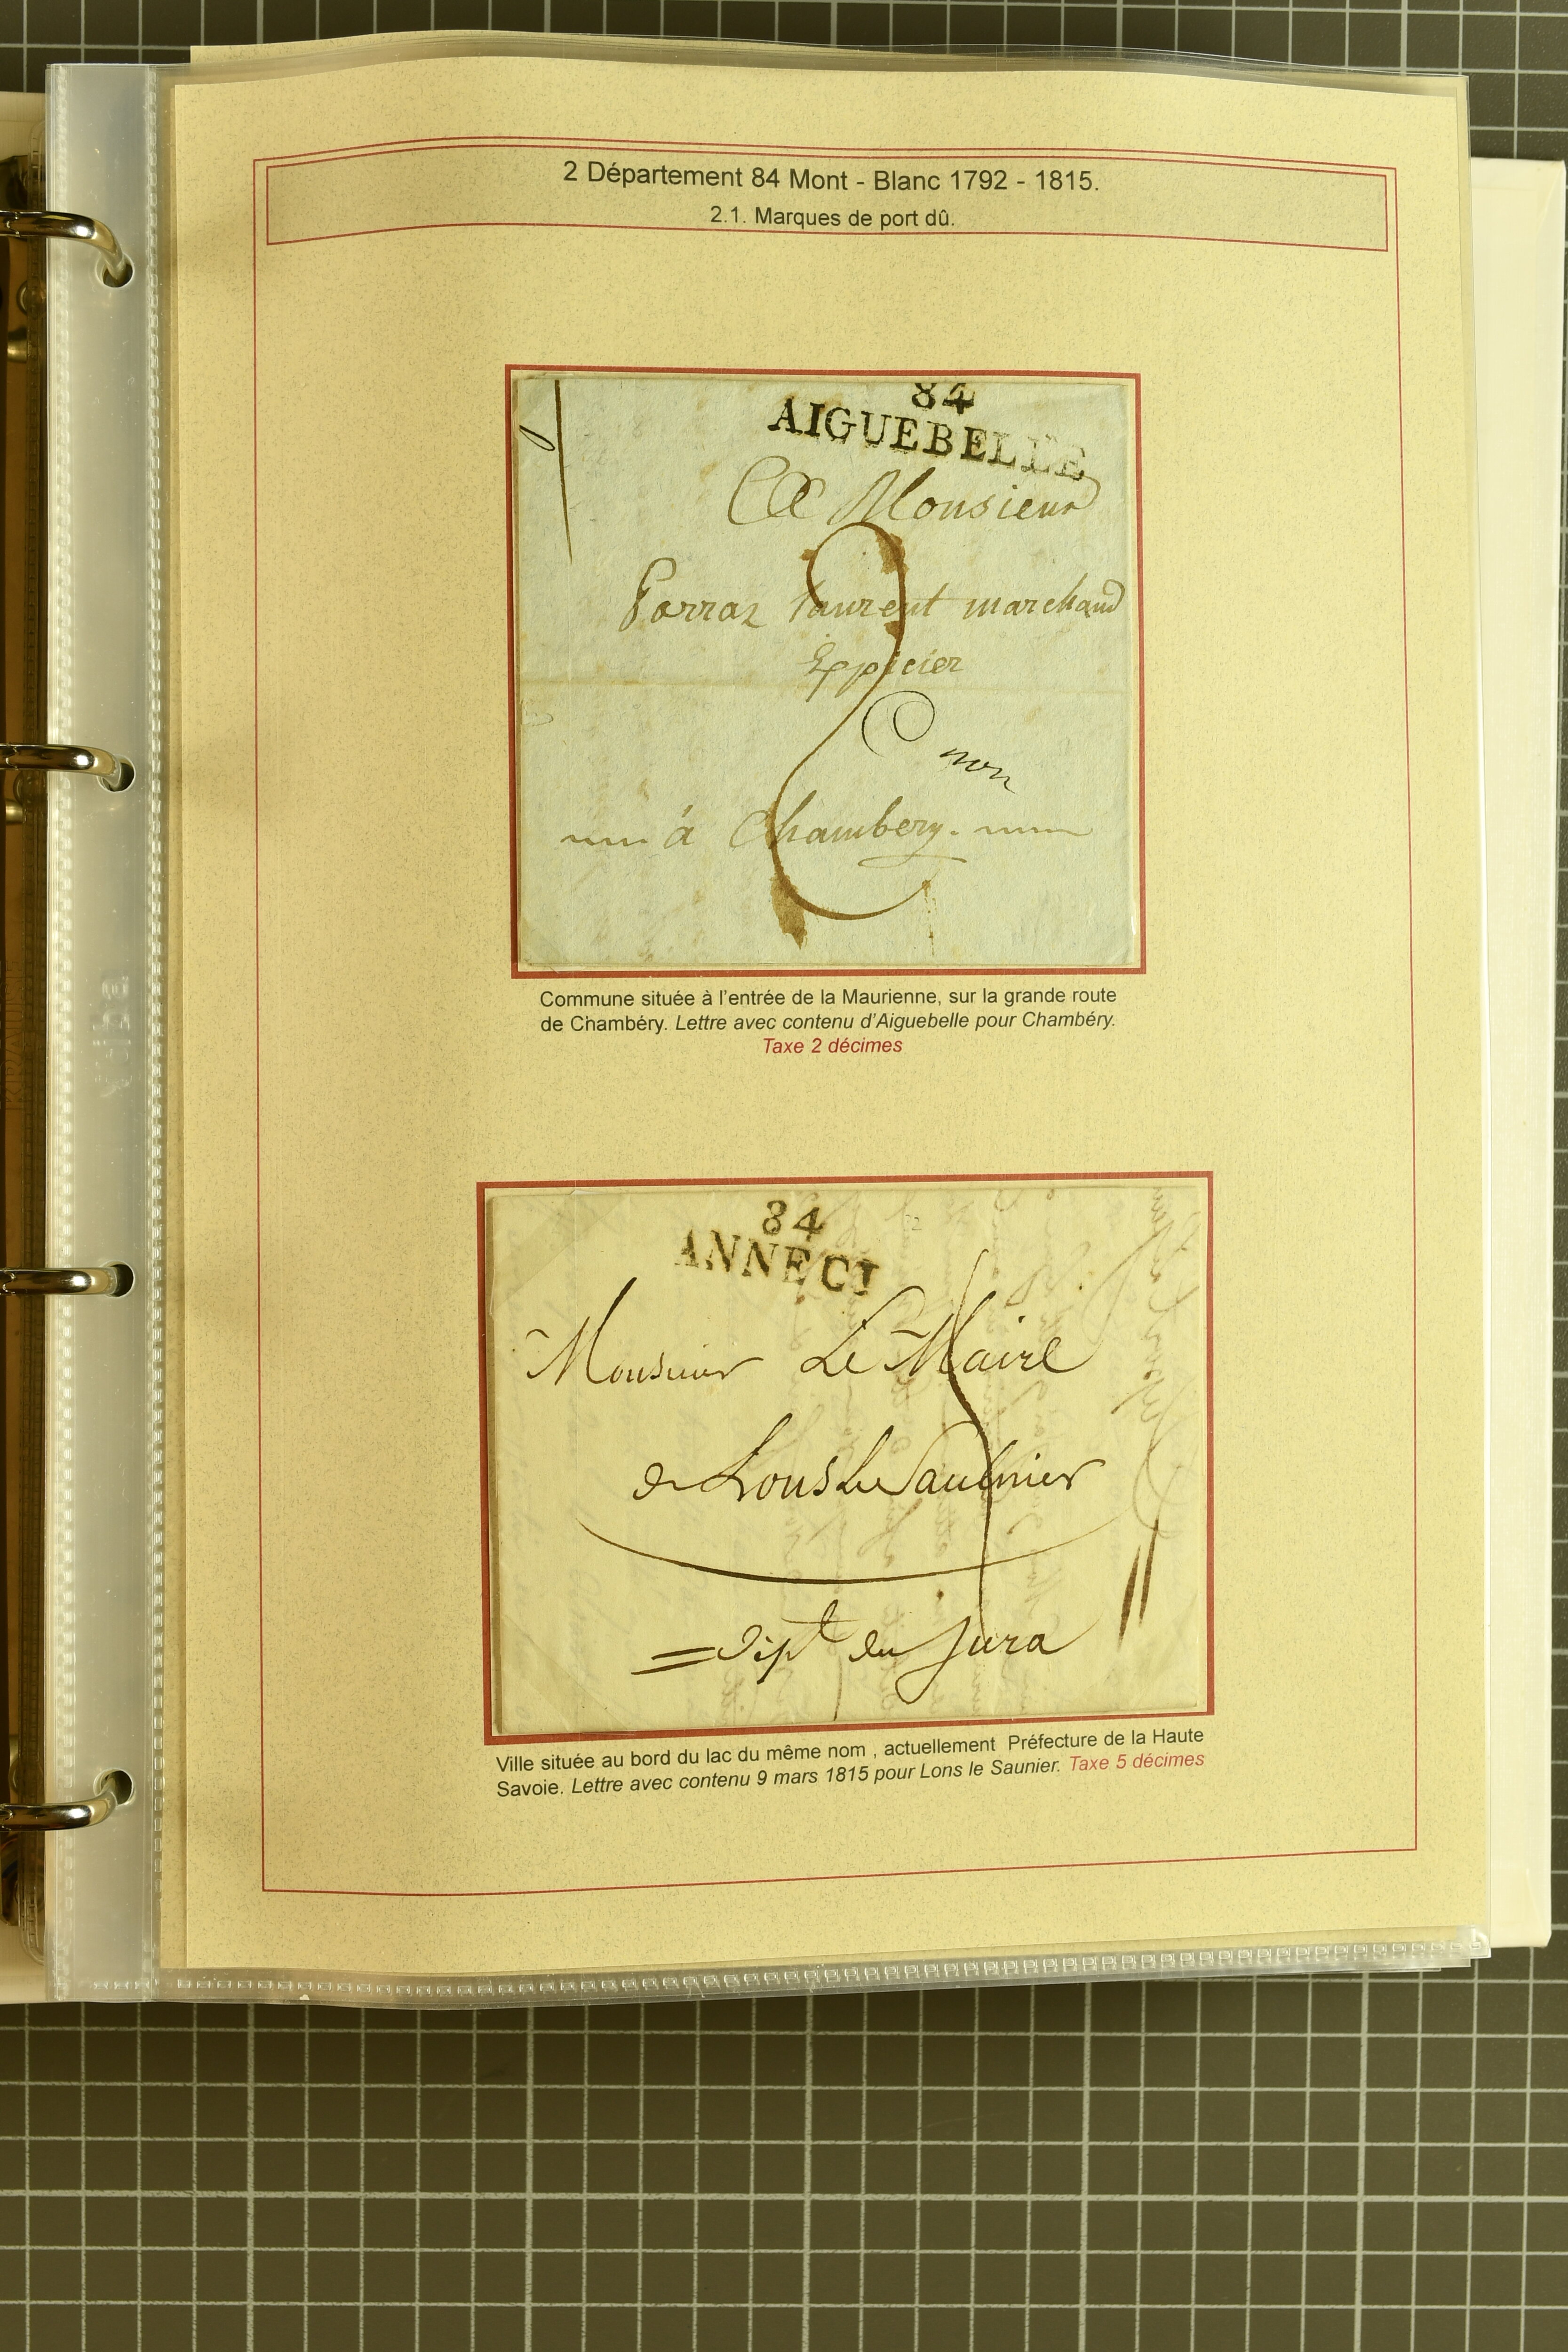 2 Département 84 Mont - Blanc 1792 - 1815.
2.1. Marques de port dû.
84
AIGUEBELLE
A Monsieur
Porraz laurent marchand
Eppicier
non
à Chambery.
Commune située à l'entrée de la Maurienne, sur la grande route
de Chambéry. Lettre avec contenu d'Aiguebelle pour Chambéry.
Taxe 2 décimes
84
ANNECI
Monsieur Le Maire
de Lons Le Saulnier
Dépt du Jura
Ville située au bord du lac du même nom , actuellement Préfecture de la Haute
Savoie. Lettre avec contenu 9 mars 1815 pour Lons le Saunier. Taxe 5 décimes